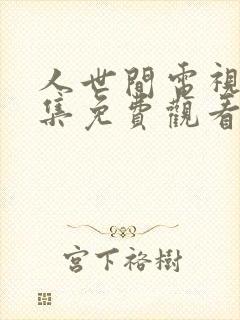 人世間電視
集免費觀看
宮下裕樹